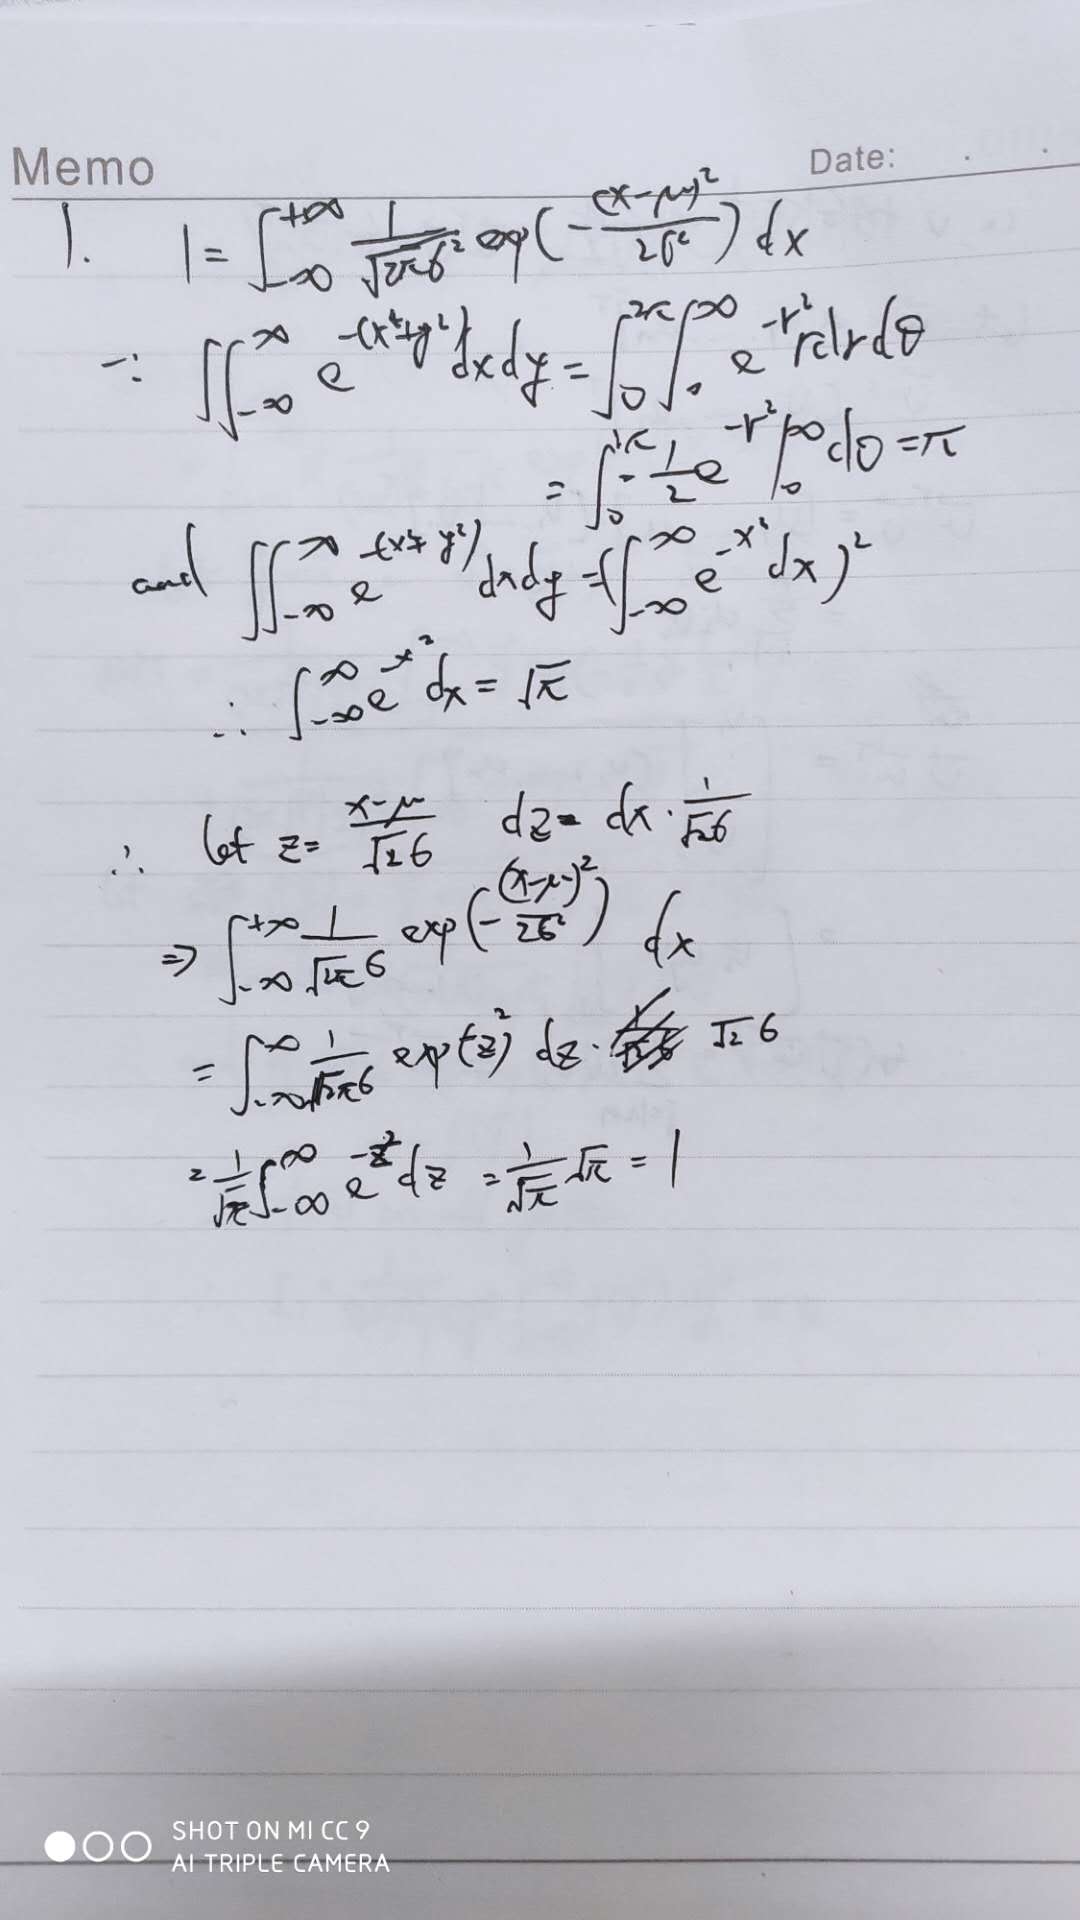 Memo
Date:
1. 1 = ∫_{-∞}^{+∞} 1/√(2πσ²) exp(-(x-μ)²/2σ²) dx
∵ ∬_{-∞}^{∞} e^{-(x²+y²)} dxdy = ∫_0^{2π} ∫_0^∞ e^{-r²} r dr dθ
= ∫_0^{2π} -1/2 e^{-r²} |_0^∞ dθ = π
and ∬_{-∞}^{∞} e^{-(x²+y²)} dxdy = (∫_{-∞}^{∞} e^{-x²} dx)²
∴ ∫_{-∞}^{∞} e^{-x²} dx = √π
∴ let z = (x-μ)/(√2 σ) dz = dx · 1/(√2 σ)
⇒ ∫_{-∞}^{+∞} 1/(√(2π) σ) exp(-(x-μ)²/2σ²) dx
= ∫_{-∞}^{∞} 1/(√(2π) σ) exp(-z²) dz · √2 σ
= 1/√π ∫_{-∞}^{∞} e^{-z²} dz = 1/√π √π = 1
SHOT ON MI CC 9
AI TRIPLE CAMERA